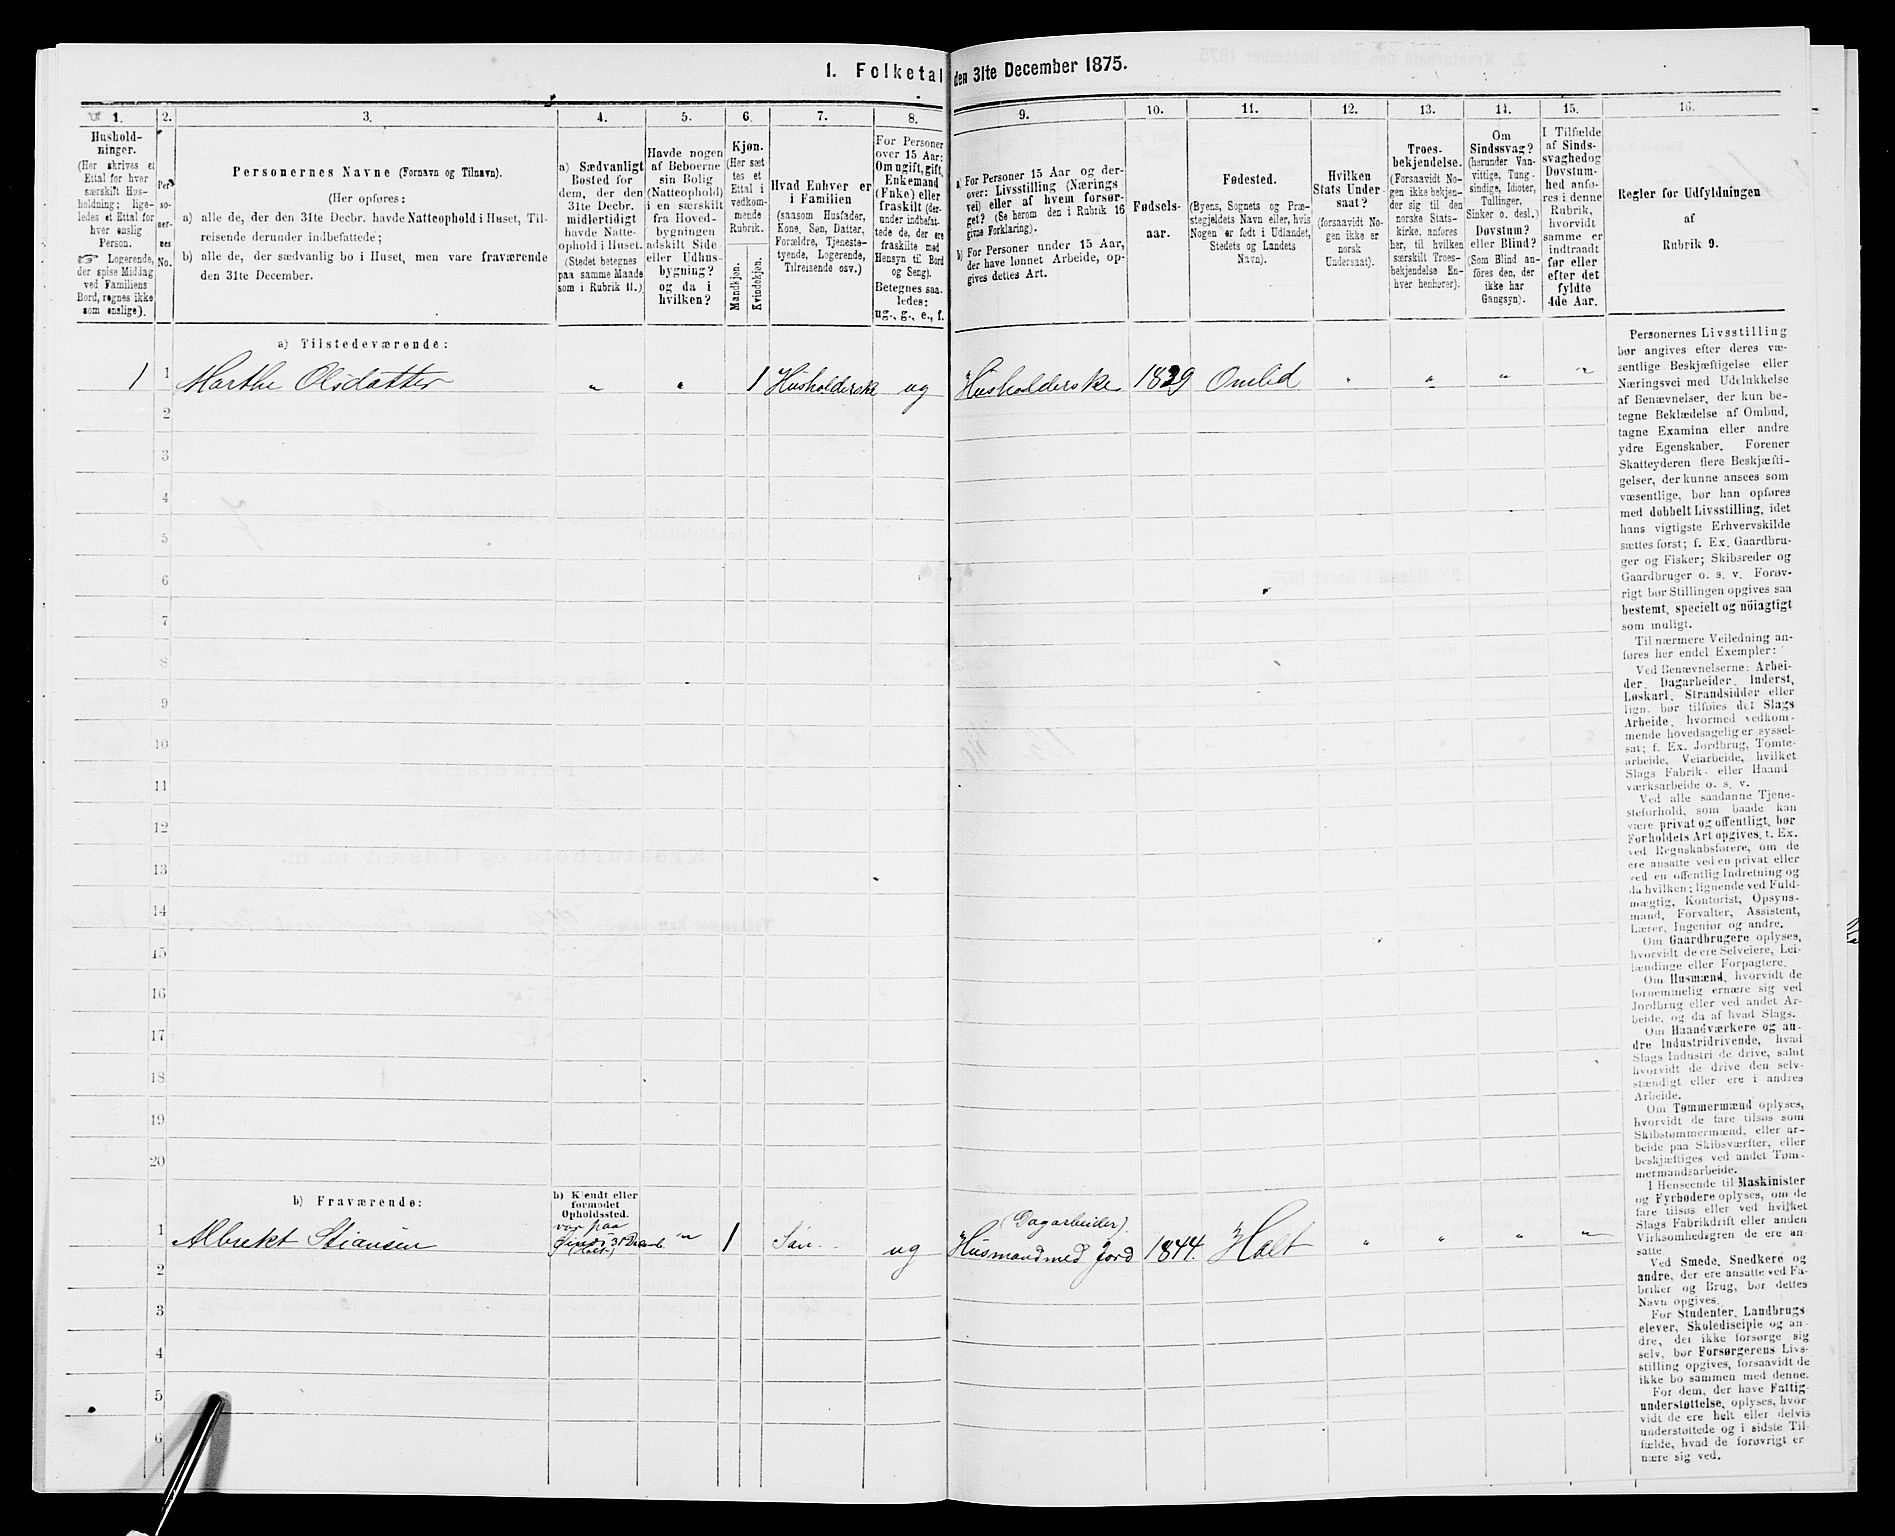 1. Folketal den 31te December 1875.
1. 2. 3. 4. 5. 6. 7. 8. 9. 10. 11. 12. 13. 14. 15. 16.
Hushold-
ninger.
(Her skrives et
Ettal for hver
særskilt Hus-
holdning; lige-
ledes et Ettal for
hver enslig
Person.
☞ Logerende,
der spise Middag
ved Familiens
Bord, regnes ikke
som enslige).
Per-
so-
ner-
nes
No.
Personernes Navne (Fornavn og Tilnavn).
(Her opføres:
a) alle de, der den 31te Decbr. havde Natteophold i Huset, Til-
reisende derunder indbefattede;
b) alle de, der sædvanlig bo i Huset, men vare fraværende
den 31te December.
a) Sædvanligt
Bosted for
dem, der den
31te Decbr.
midlertidigt
havde Natte-
ophold i Huset.
(Stedet betegnes
paa samme Maade
som i Rubrik 11.)
Havde nogen
af Beboerne
sin Bolig
(Natteophold)
i en særskilt
fra Hoved-
bygningen
adskilt Side-
eller Udhus-
bygning?
og da i
hvilken?
Kjøn.
(Her sæt-
tes et
Ettal i
vedkom-
mende
Rubrik.
Mandkjøn.
Kvindekjøn.
Hvad Enhver er
i Familien
(saasom Husfader,
Kone, Søn, Datter,
Forældre, Tjeneste-
tyende, Logerende,
Tilreisende osv.)
For Personer
over 15 Aar:
Om ugift, gift,
Enkemand
(Enke) eller
fraskilt (der-
under indbefat-
tede de, der ere
fraskilte med
Hensyn til Bord
og Seng).
Betegnes saa-
ledes:
ug., g., e., f.
a) For Personer 15 Aar og der-
over: Livsstilling (Nærings-
vei) eller af hvem forsør-
get? (Se herom den i Rubrik 16
givne Forklaring).
b) For Personer under 15 Aar,
der have lønnet Arbeide, op-
gives dettes Art.
Fødsels-
aar.
Fødested.
(Byens, Sognets og Præ-
stegjeldets Navn eller, hvis
Nogen er født i Udlandet,
Stedets og Landets
Navn).
Hvilken
Stats Under-
saat?
(forsaavidt No-
gen ikke er
norsk
Undersaat).
Troes-
bekjendelse.
(Forsaavidt No-
gen ikke bekjen-
der sig til den
norske Stats-
kirke, anføres
her, til hvilken
særskilt Troes-
bekjendelse En-
hver henhører).
Om
Sindssvag?
(herunder Van-
vittige, Tung-
sindige, Idioter,
Tullinger,
Sinker o. desl.)
Døvstum?
eller Blind?
(Som Blind an-
føres den, der
ikke har
Gangsyn).
I Tilfælde
af Sinds-
svaghed og
Døvstum-
hed anfø-
res i denne
Rubrik,
hvorvidt
samme er
indtraadt
før eller
efter det
fyldte
4de Aar.
Regler for Udfyldningen
af
Rubrik 9.
a) Tilstedeværende:
1 1 Marthe Olsdatter " " 1 Husholderske ug Husholderske 1829 Omlid " " " "
2
3
4
5
6
7
8
9
10
11
12
13
14
15
16
17
18
19
20
b) Fraværende:
b) Kjendt eller
formodet
Opholdssted.
1 Albrekt Stiansen var paa " 1 Søn ug (Dagarbeider) Husmand med Jord 1844. Holt " " " "
2
3
4
5
6
Personernes Livsstilling
bør angives efter deres væ-
sentlige Beskjæftigelse eller
Næringsvei med Udelukkelse
af Benævnelser, der kun be-
tegne Beklædelse af Ombud,
tagne Examina eller andre
ydre Egenskaber. Forener
Skatteyderen flere Beskjæfti-
gelser, der kunne ansees som
væsentlige, bør han opføres
med dobbelt Livsstilling, idet
hans vigtigste Erhvervskilde
sættes først; f. Ex. Gaardbru-
ger og Fisker; Skibsreder og
Gaardbruger o. s. v. Forøv-
rigt bør Stillingen opgives saa
bestemt, specielt og nöiagtigt
som muligt.
Til nærmere Veiledning an-
føres her endel Exempler:
Ved Benævnelserne: Arbei-
der, Dagarbeider, Inderst,
Løskarl, Strandsidder eller
lign. bør tilføies det Slags
Arbeide, hvormed vedkom-
mende hovedsagelig er syssel-
sat; f. Ex. Jordbrug, Tomte-
arbeide, Veiarbeide, hvilket
Slags Fabrik- eller Haand-
værksarbeide o. s. v.
Ved alle saadanne Tjene-
steforhold, som baade kan
være privat og offentligt, bør
Forholdets Art opgives, t. Ex.
ved Regnskabsførere, om de
ere ansatte ved en privat eller
ved en offentlig Indretning og
da hvilken; lignende ved Fuld-
mægtig, Kontorist, Opsyns-
mand, Forvalter, Assistent,
Lærer, Ingeniør og andre.
Om Gaardbrugere oplyses,
hvorvidt de ere Selveiere, Lei-
lændinge eller Forpagtere.
Om Husmænd, hvorvidt de
fornemmelig ernære sig ved
Jordbrug eller ved andet Ar-
beide, og da af hvad Slags.
Om Haandværkere og an-
dre Industridrivende, hvad
Slags Industri de drive, samt
hvorvidt de drive den selv-
stændigt eller ere i andres
Arbeide.
Om Tømmermænd oplyses,
hvorvidt de fare tilsøs som
Skibstømmermænd, eller ar-
beide paa Skibsværfter, eller
beskjæftiges ved andet Tøm-
mermandsarbeide.
I Henseende til Maskinister
og Fyrbødere oplyses, om de
fare tilsøs eller ved hvilket
Slags Fabrikdrift eller anden
Virksomhedsgren de ere an-
satte.
Ved Smede, Snedkere og
andre, der ere ansatte ved Fa-
briker og Brug, bør dettes
Navn opgives.
For Studenter, Landbrugs-
elever, Skoledisciple og an-
dre, der ikke forsørge sig
selv, bør Forsørgerens Livs-
stilling opgives, forsaavidt de
ikke bo sammen med denne.
For dem, der have Fattig-
understøttelse, oplyses, hvor-
vidt de ere helt eller delvis
understøttede og i sidste Til-
fælde, hvad de forøvrigt er-
nære sig ved.